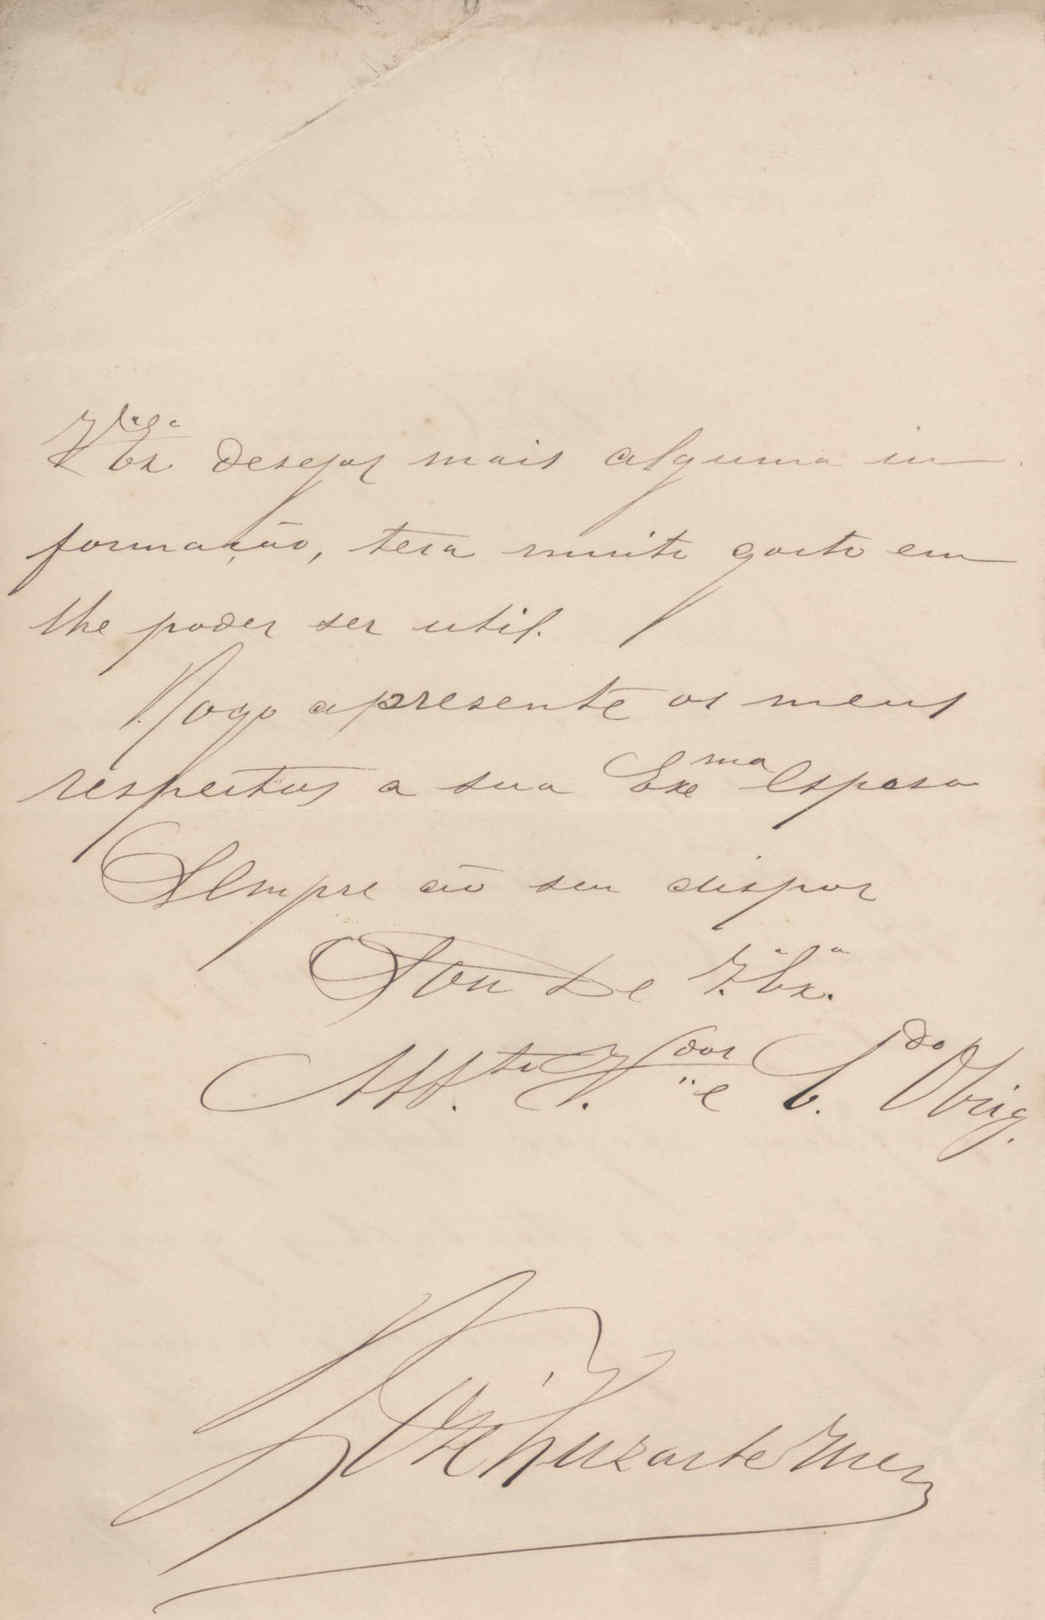 V. Exª desejar mais alguma in
formação, terá muito gosto em
lhe poder ser util.
Rogo apresente os meus
respeitos a sua Exma Esposa
Sempre ao seu dispor
Sou de V. Exª.
Attto. V.dor e C.do Obrig.